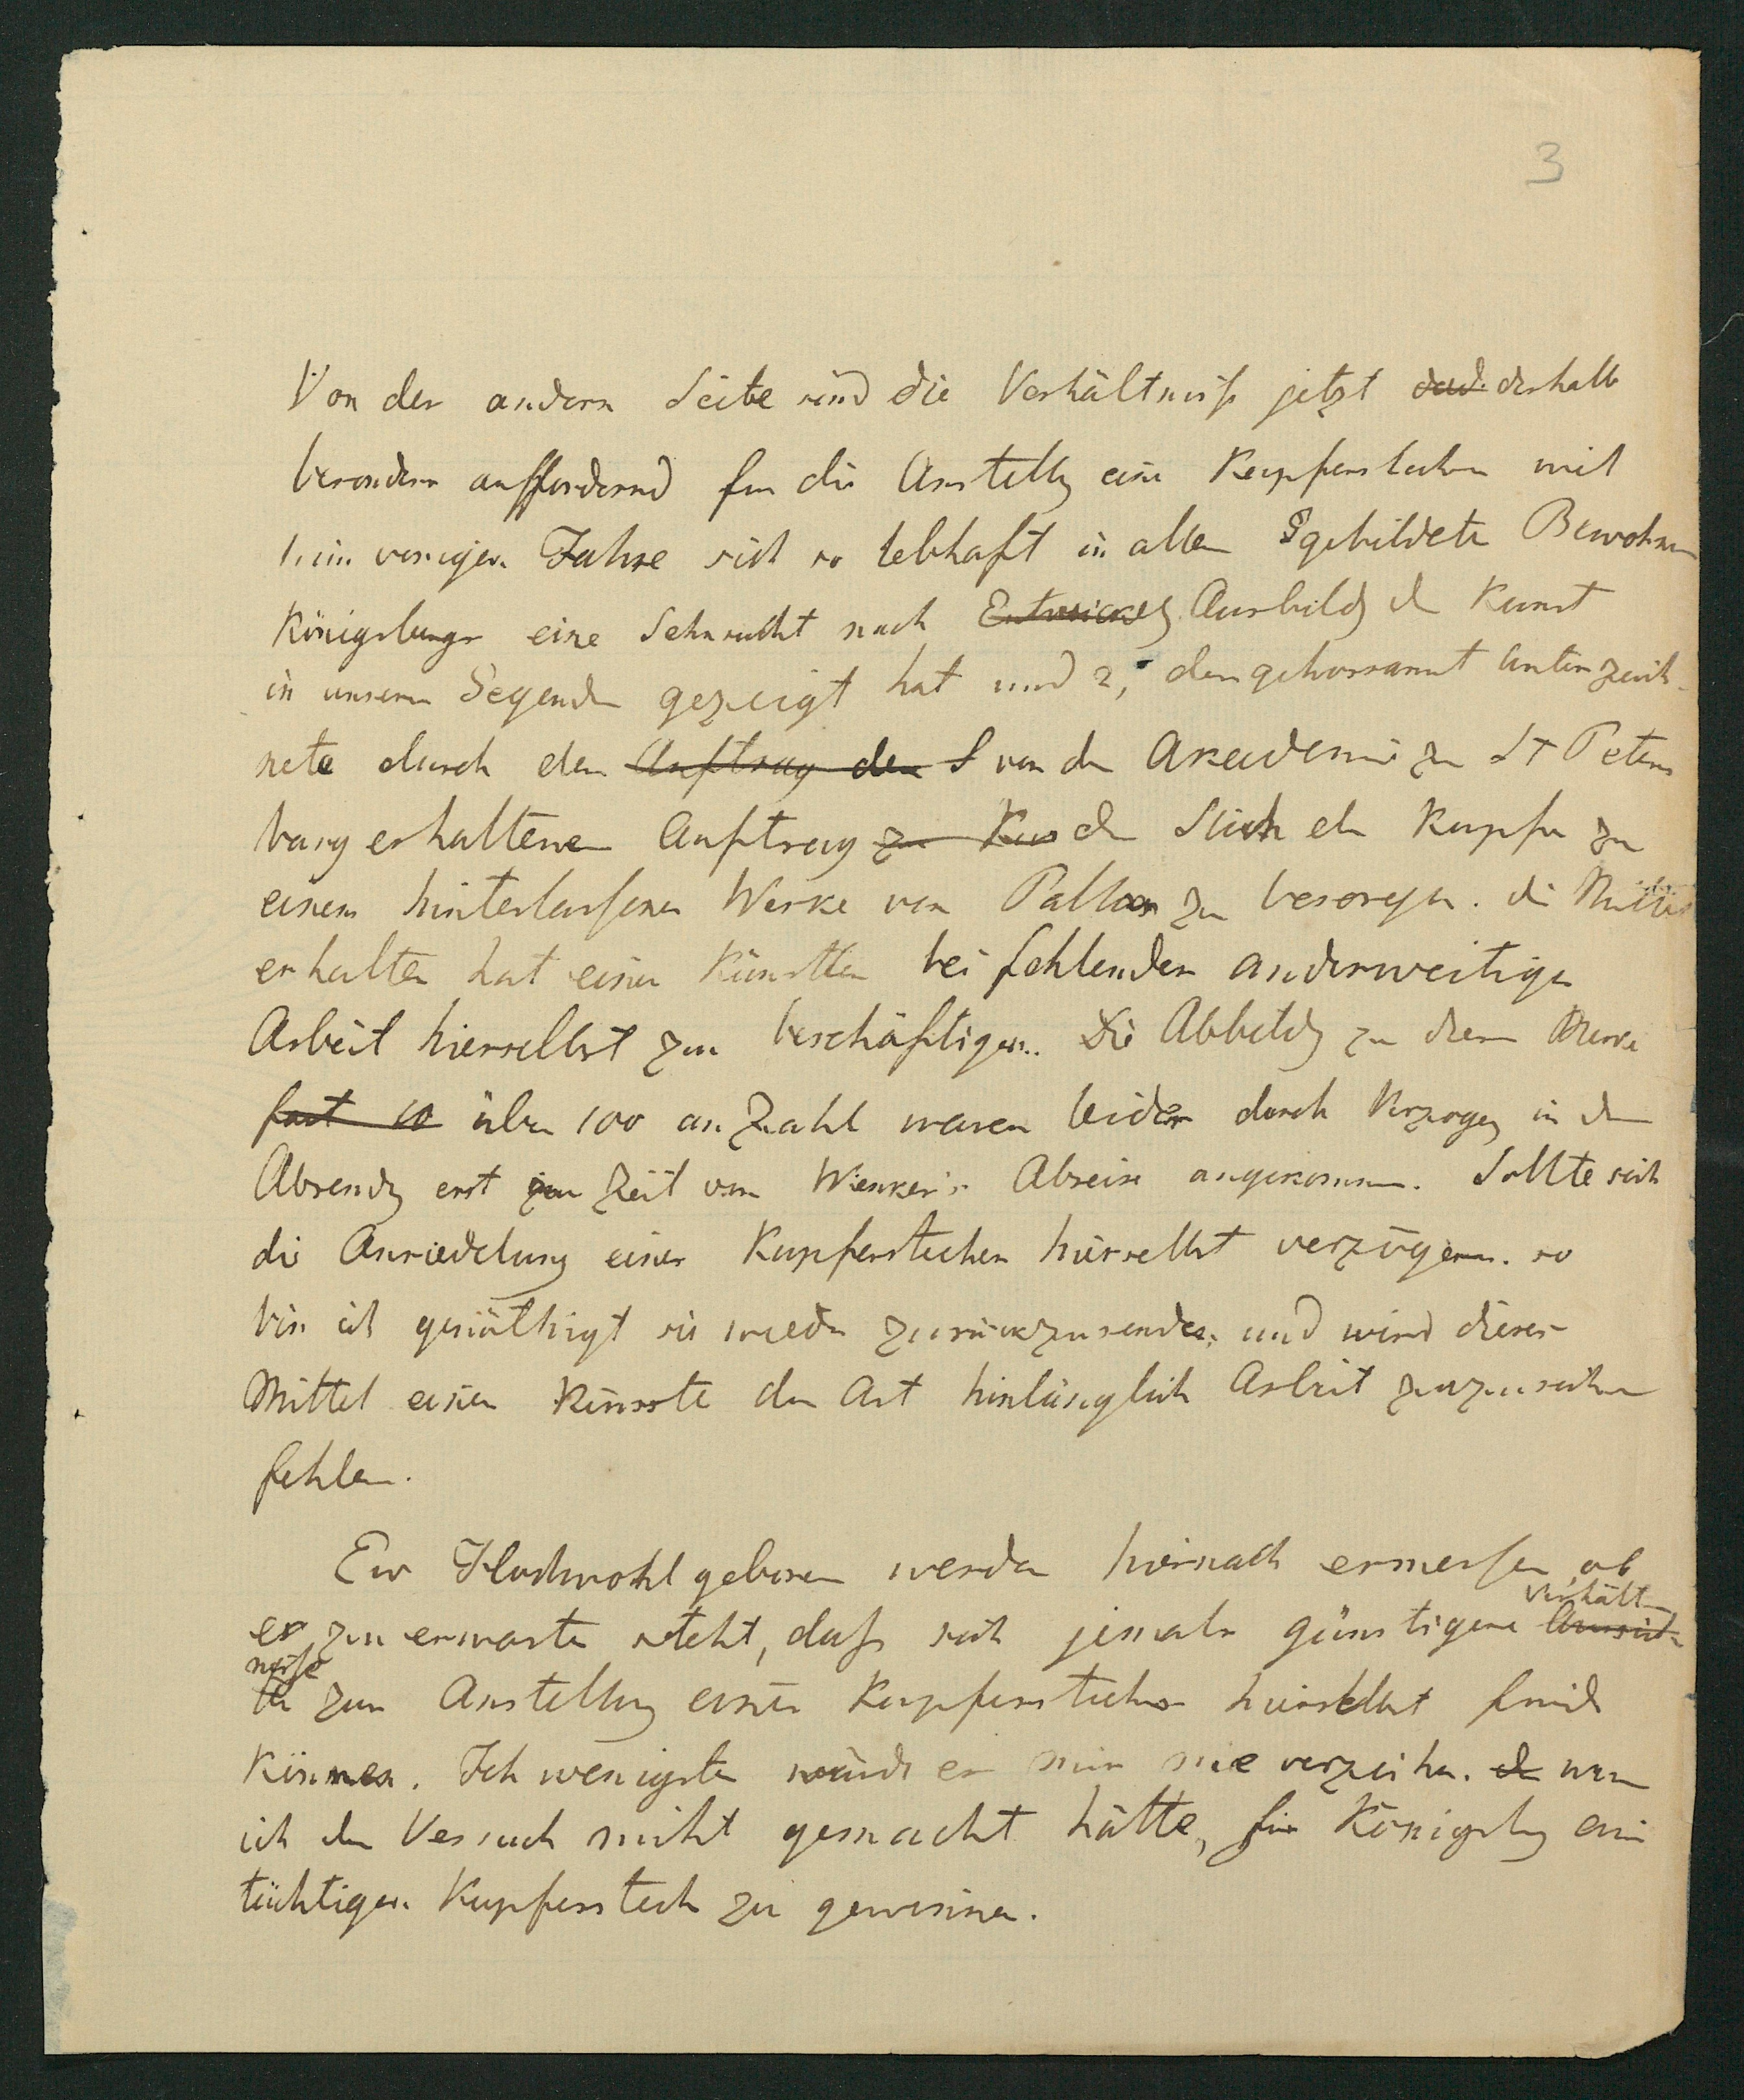 3
Von der andern Seite sind die Verhältniß jetzt deshalb
besonders auffordernd für die Anstellg eine Kupferstechers weil
1, im vorigen Jahre sich so lebhaft in allen gebildete Bewohnern
Königsbergs eine Sehnsucht nach Entwickelg Ausbildg d Kunst
in unsern Gegenden gezeigt hat und 2, der gehorsamst Unterzeich-
nete durch den Auftrag der S von der Akademie zu St Peters
burg erhaltenen Auftrag zu Kus den Stich der Kupfer zu
einem hinterlaßenen Werke von Pallas zu besorgen. die Mittel
erhalten hat einen Künstler bei fehlender anderweitiger
Arbeit hierselbst zu beschäftigen. Die Abbildg zu diesem Werke
fast 10 über 100 an Zahl waren leider durch Verzögerg in der
Absendg erst zur Zeit von Wienker's Abreise angekommen. Sollte sich
die Ansiedelung eines Kupferstechers hierselbst verzögern. so
bin ich genöthigt sie wieder zurückzusenden, und wird dieses
Mittel einen Künstle der Art hinlänglich Arbeit zuzusichern
fehlen.
Ew Hochwohlgeboren werden hiernach ermeßen, ob
es zu erwarten steht, daß sich jemals günstigere Aussich Verhält-
niße ten zur Anstellung eines Kupferstechers hierselbst find
können. Ich wenigsten würde es mir nie verzeihen. d wenn
ich den Versuch nicht gemacht hätte, für Königsbg ein
tüchtigen Kupferstech zu gewinnen.